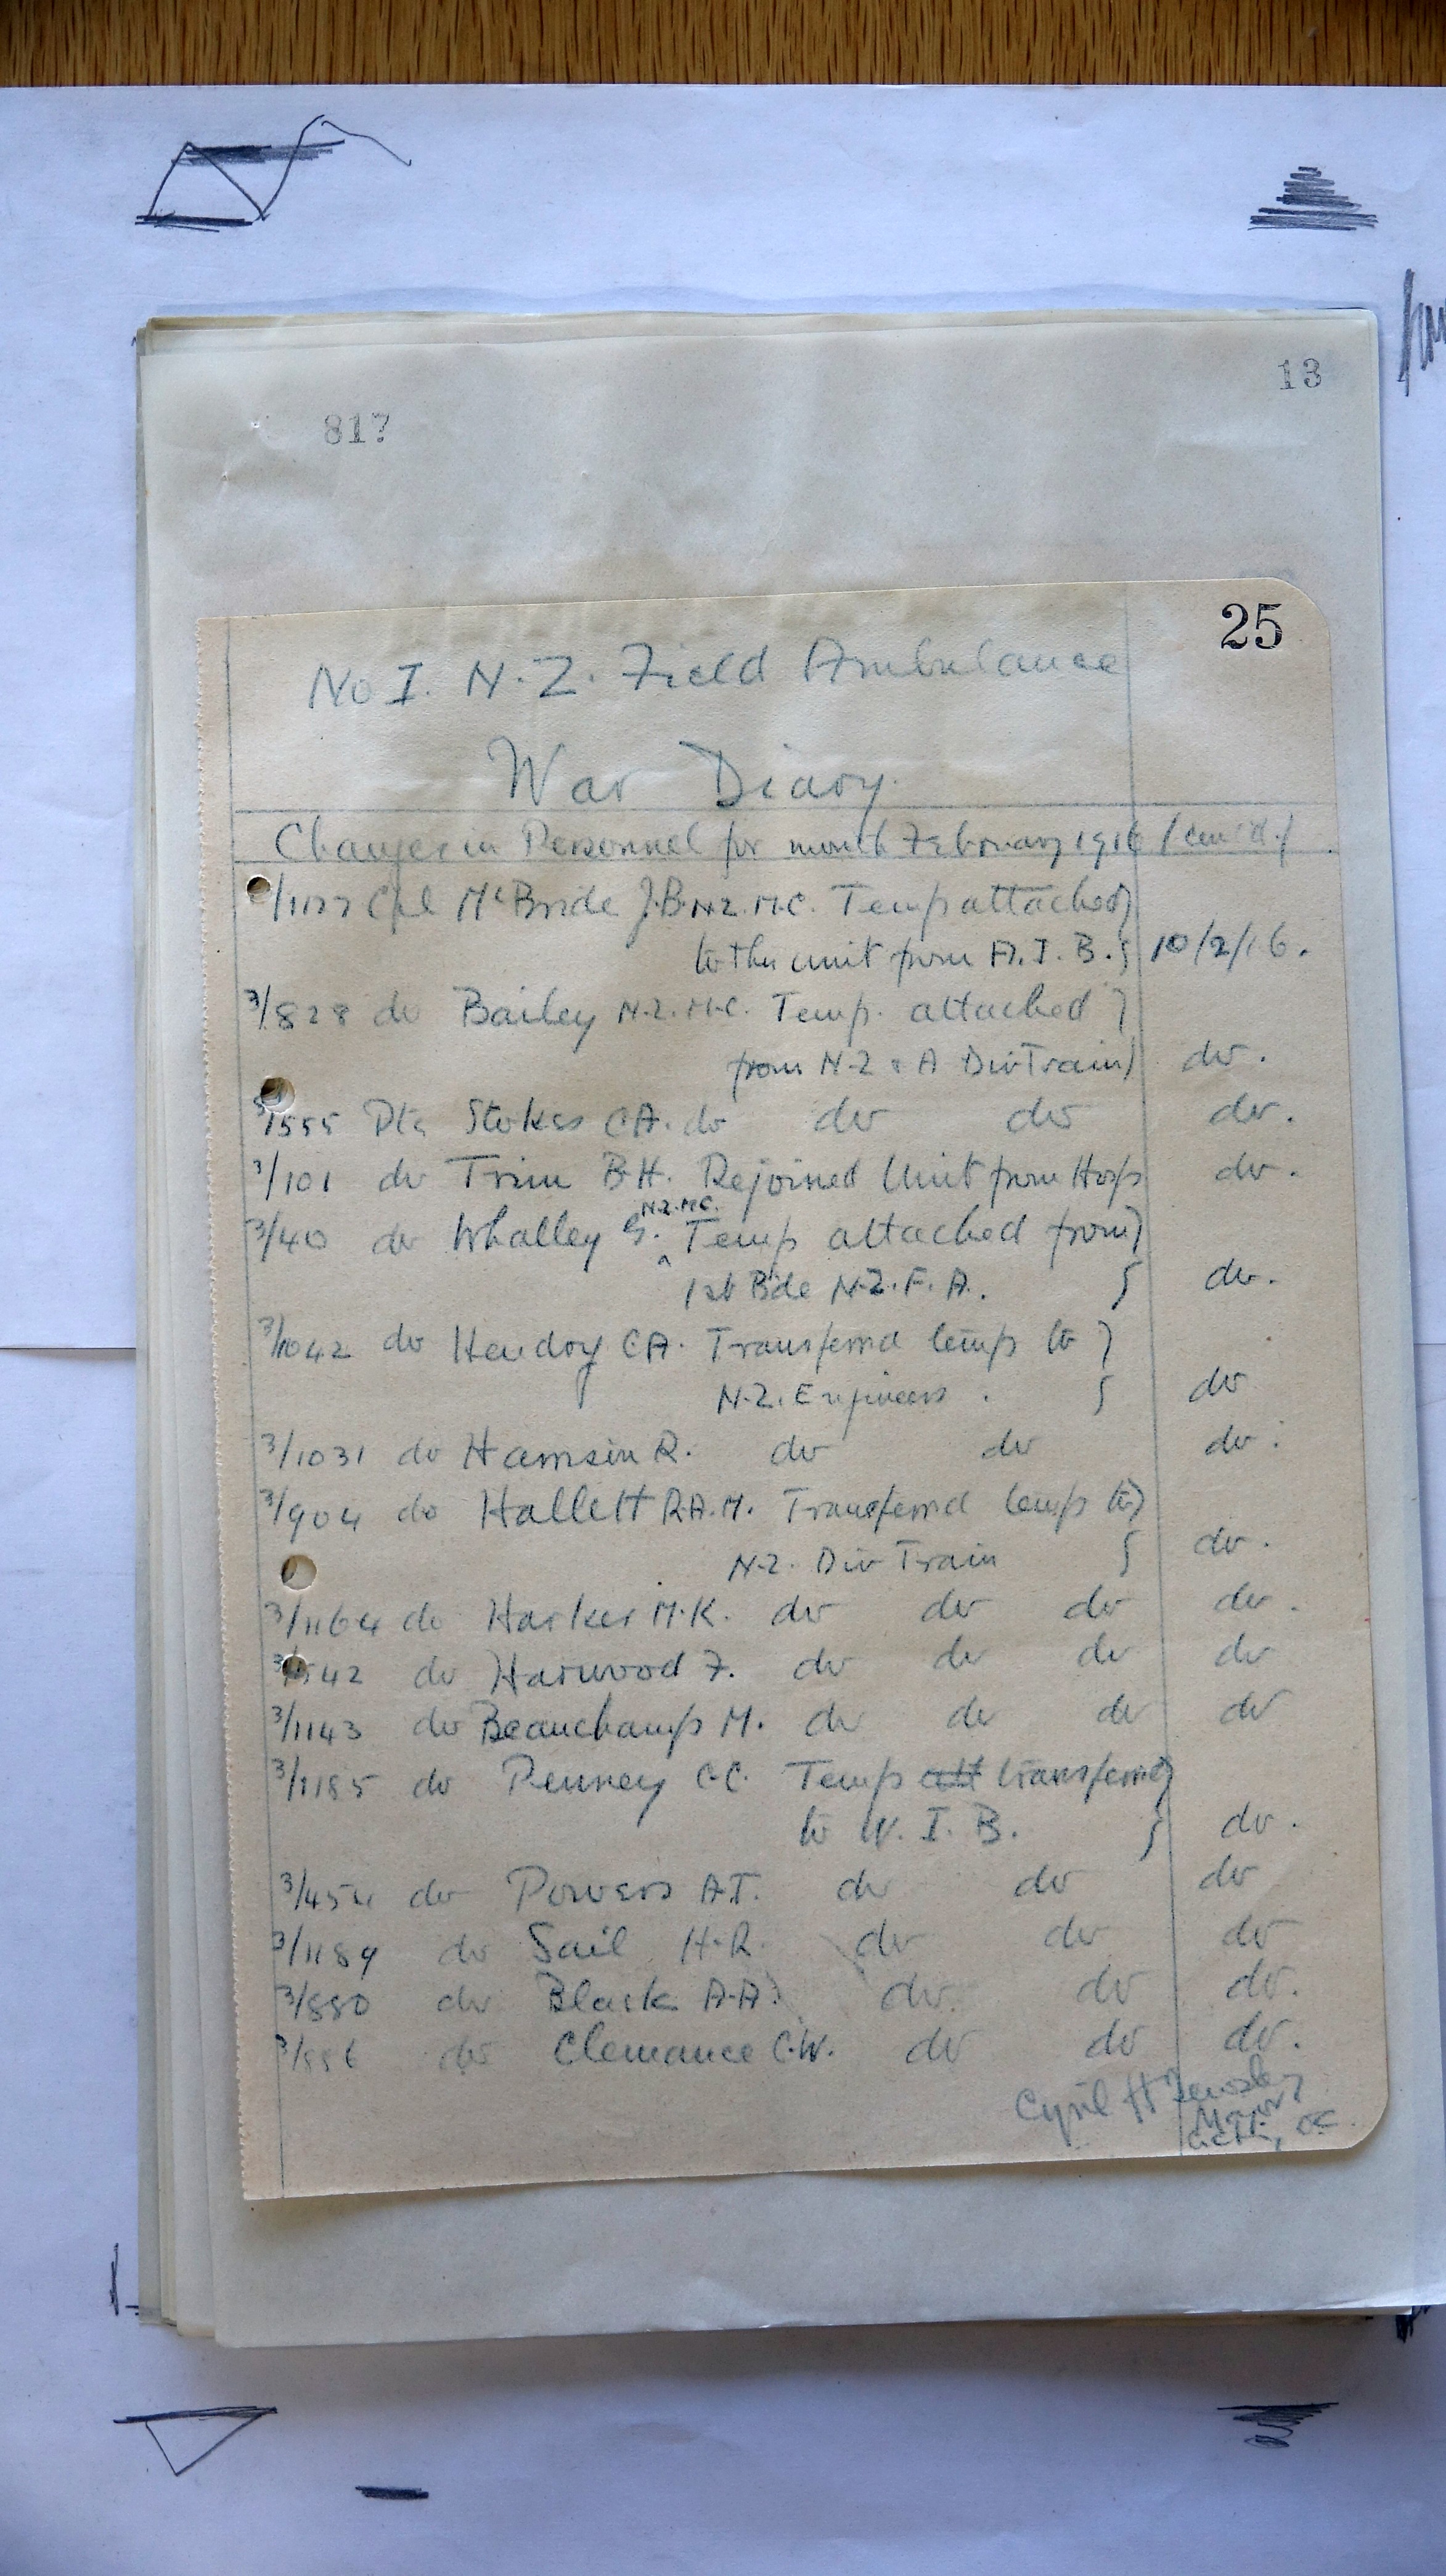 13
817
25
No I. N.Z. Field Ambulance
War Diary.
Changes in Personnel for month February 1916 (cont'd.)
Cpl McBride J.B. N.Z.M.C. Temp attached
to this unit from A.I.B. 10/2/16.
3/828 do Bailey N.Z.M.C. Temp. attached
from N.Z & A Div Train do.
3/1555 Pte Stokes C.A. do do do do.
3/101 do Trim B.H. Rejoined Unit from Hosp do.
N.Z.M.C.
3/40 do Whalley G. Temp attached from
1st Bde N.Z.F.A. do.
3/1042 do Hendry C.A. Transferred temp to
N.Z. Engineers. do
3/1031 do R. do do do.
3/904 do Hallett R.A.M. Transferred temp to
N.Z. Div Train do.
3/1164 do Harker M.K. do do do do.
542 do Harwood F. do do do do
3/1143 do Beauchamp M. do do do do
3/1185 do Penney C.C. Temp att transferred
to W.I.B. do.
3/454 do Powers A.T. do do do
3/1189 do Sail H.R. do do do
3/880 do Black A.A. do. do do.
3/886 do Clemance C.W. do do do.
Cyril H
Major
OC